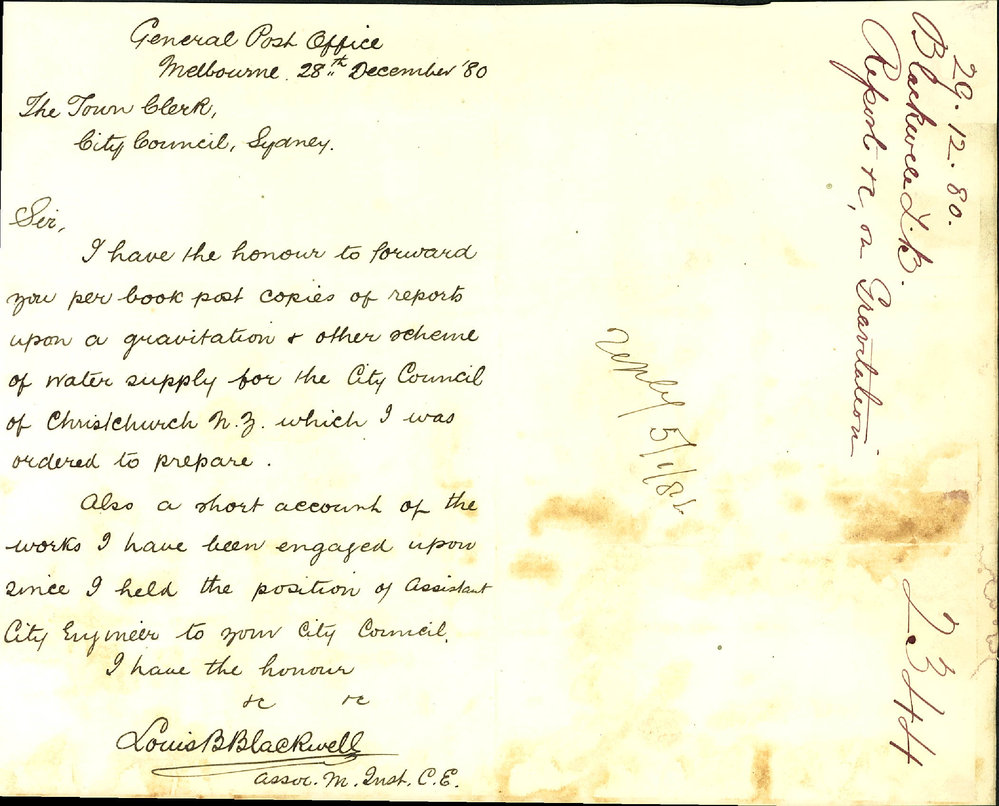 General Post Office
Melbourne. 28th December '80
The Town Clerk,
City Council, Sydney.
Sir,
I have the honour to forward
you per book post copies of reports
upon a gravitation & other scheme
of water supply for the City Council
of Christchurch N.Z. which I was
ordered to prepare.
Also a short account of the
works I have been engaged upon
since I held the position of Assistant
City Engineer to your City Council.
I have the honour
&c &c
Louis B Blackwell
Assoc. M. Inst. C.E.
29.12.80.
Blackwell L.B.
Report &c, on Gravitation
5/1/81
2344